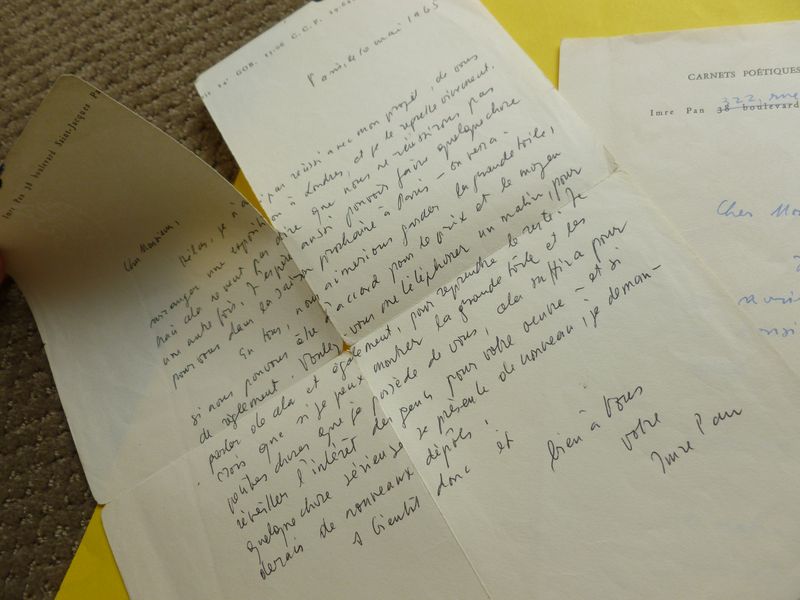 Imre Pan 38 boulevard Saint-Jacques
GOB. 11-00 C.C.P.
Paris, le 10 mai 1965
Cher Monsieur,
Hélas, je n'ai pas réussi avec mon projet, de vous
arranger une exposition à Londres, et je le regrette vivement.
Mais cela ne veut pas dire que nous ne réussirons pas
une autre fois. J'espère aussi pouvoir faire quelque chose
pour vous dans la saison prochaine à Paris – on verra.
En tous, nous aimerions garder la grande toile,
si nous pouvons être d'accord pour le prix et le moyen
de règlement. Voulez-vous me téléphoner un matin, pour
parler de cela et également, pour reprendre le reste. Je
crois que si je peux montrer la grande toile et les
petites choses que je possède de vous, cela suffira pour
réveiller l'intérêt des gens pour votre œuvre – et si
quelque chose sérieuse se présente de nouveau, je deman-
derais de nouveaux dépôts.
A bientôt donc et
bien à vous
votre
Imre Pan
CARNETS POÉTIQUES
Imre Pan 38 boulevard
322, rue
Cher